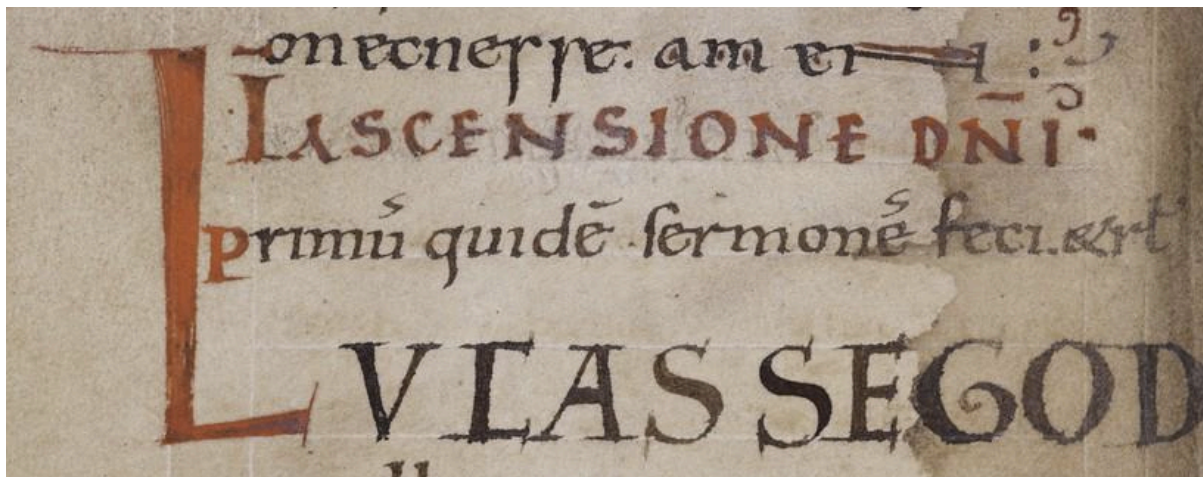 on ecnesse: am en
IN ASCENSIONE DN̄I·
primū quidē sermonē feci. & rł
LVCAS SE GOD